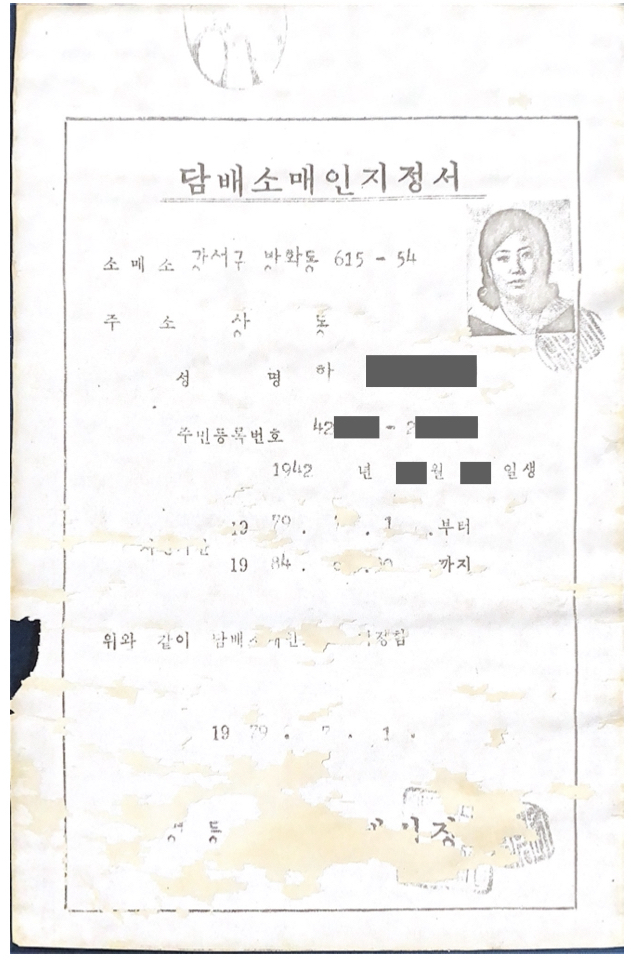 담배소매인지정서
소매소 강서구 방화동 615-54
주소 상동
성명 하
주민등록번호 42 - 2
1942 년 월 일생
19 79. . 1 .부터
19 84. . 30 까지
위와 같이 담배소매인 지정함
19 79. 7. 1.